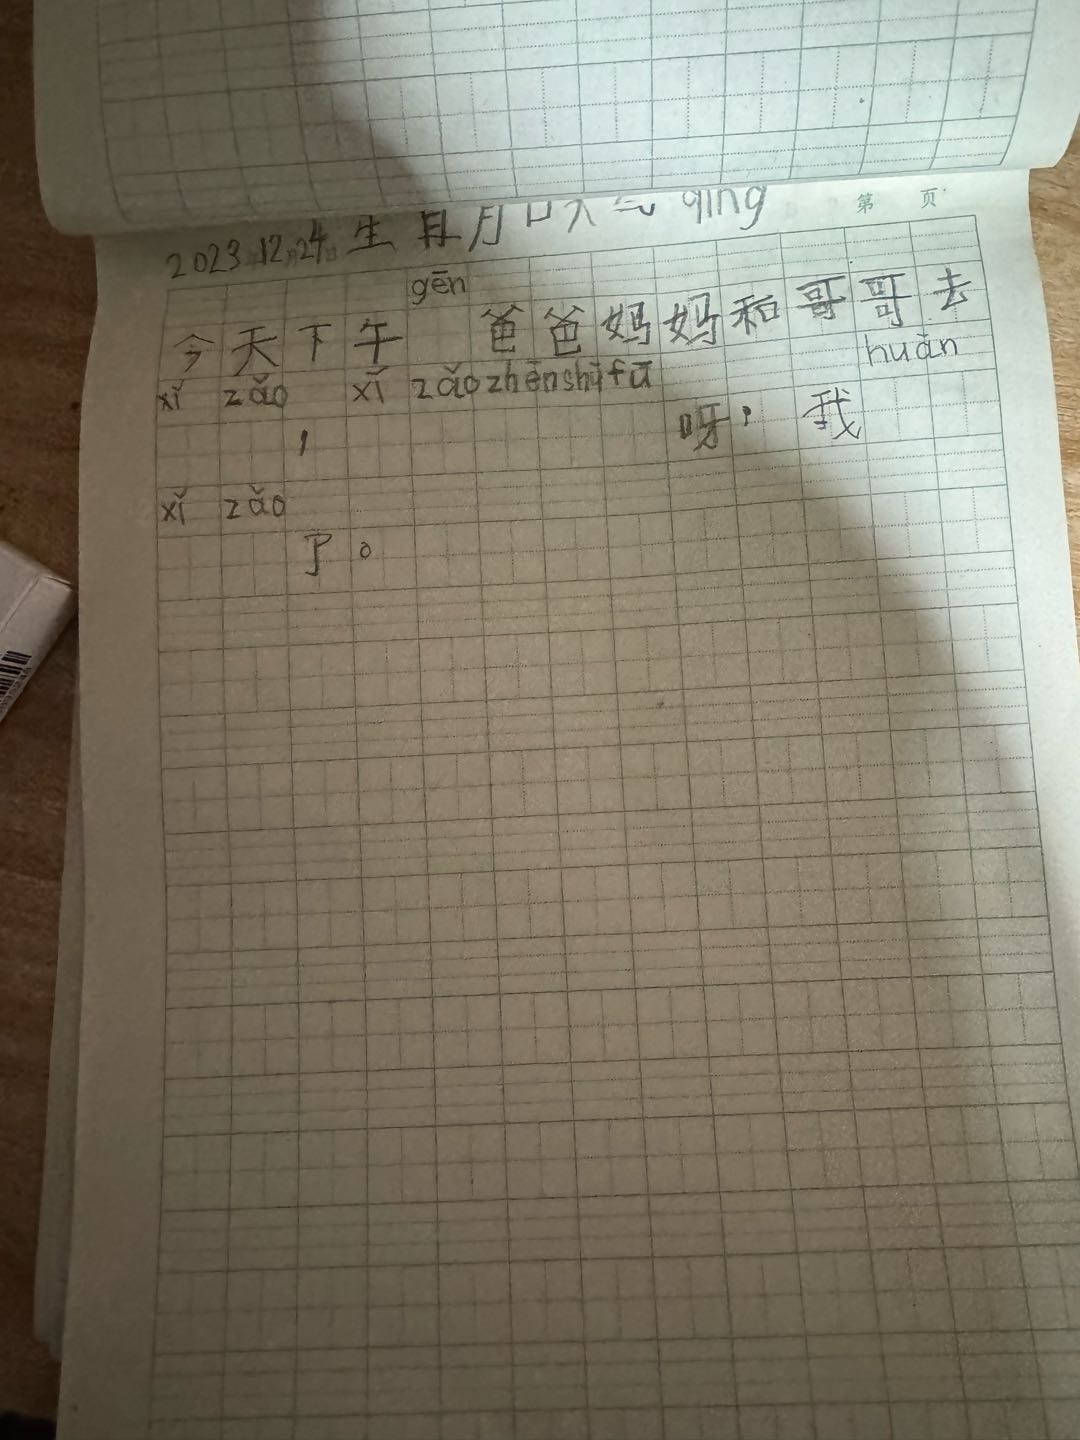 第 页
2023年12月24日 生 月 日 天气 qíng
gēn
今天下午 爸爸妈妈和哥哥去
xǐ zǎo xǐ zǎo zhēn shū fū huǎn
， 呀，我
xǐ zǎo
了。